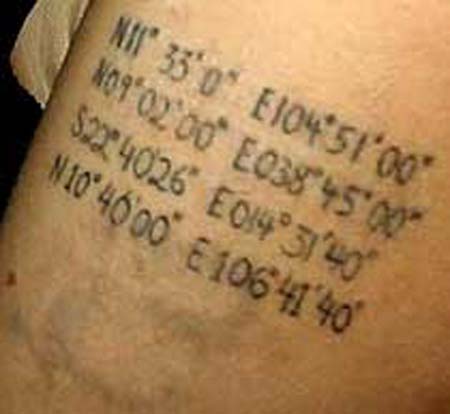 N11° 33'0" E104°51'00"
N09°02'00" E038°45'00"
S22°4026" E014°31'40"
N10°46'00" E106°41'40"